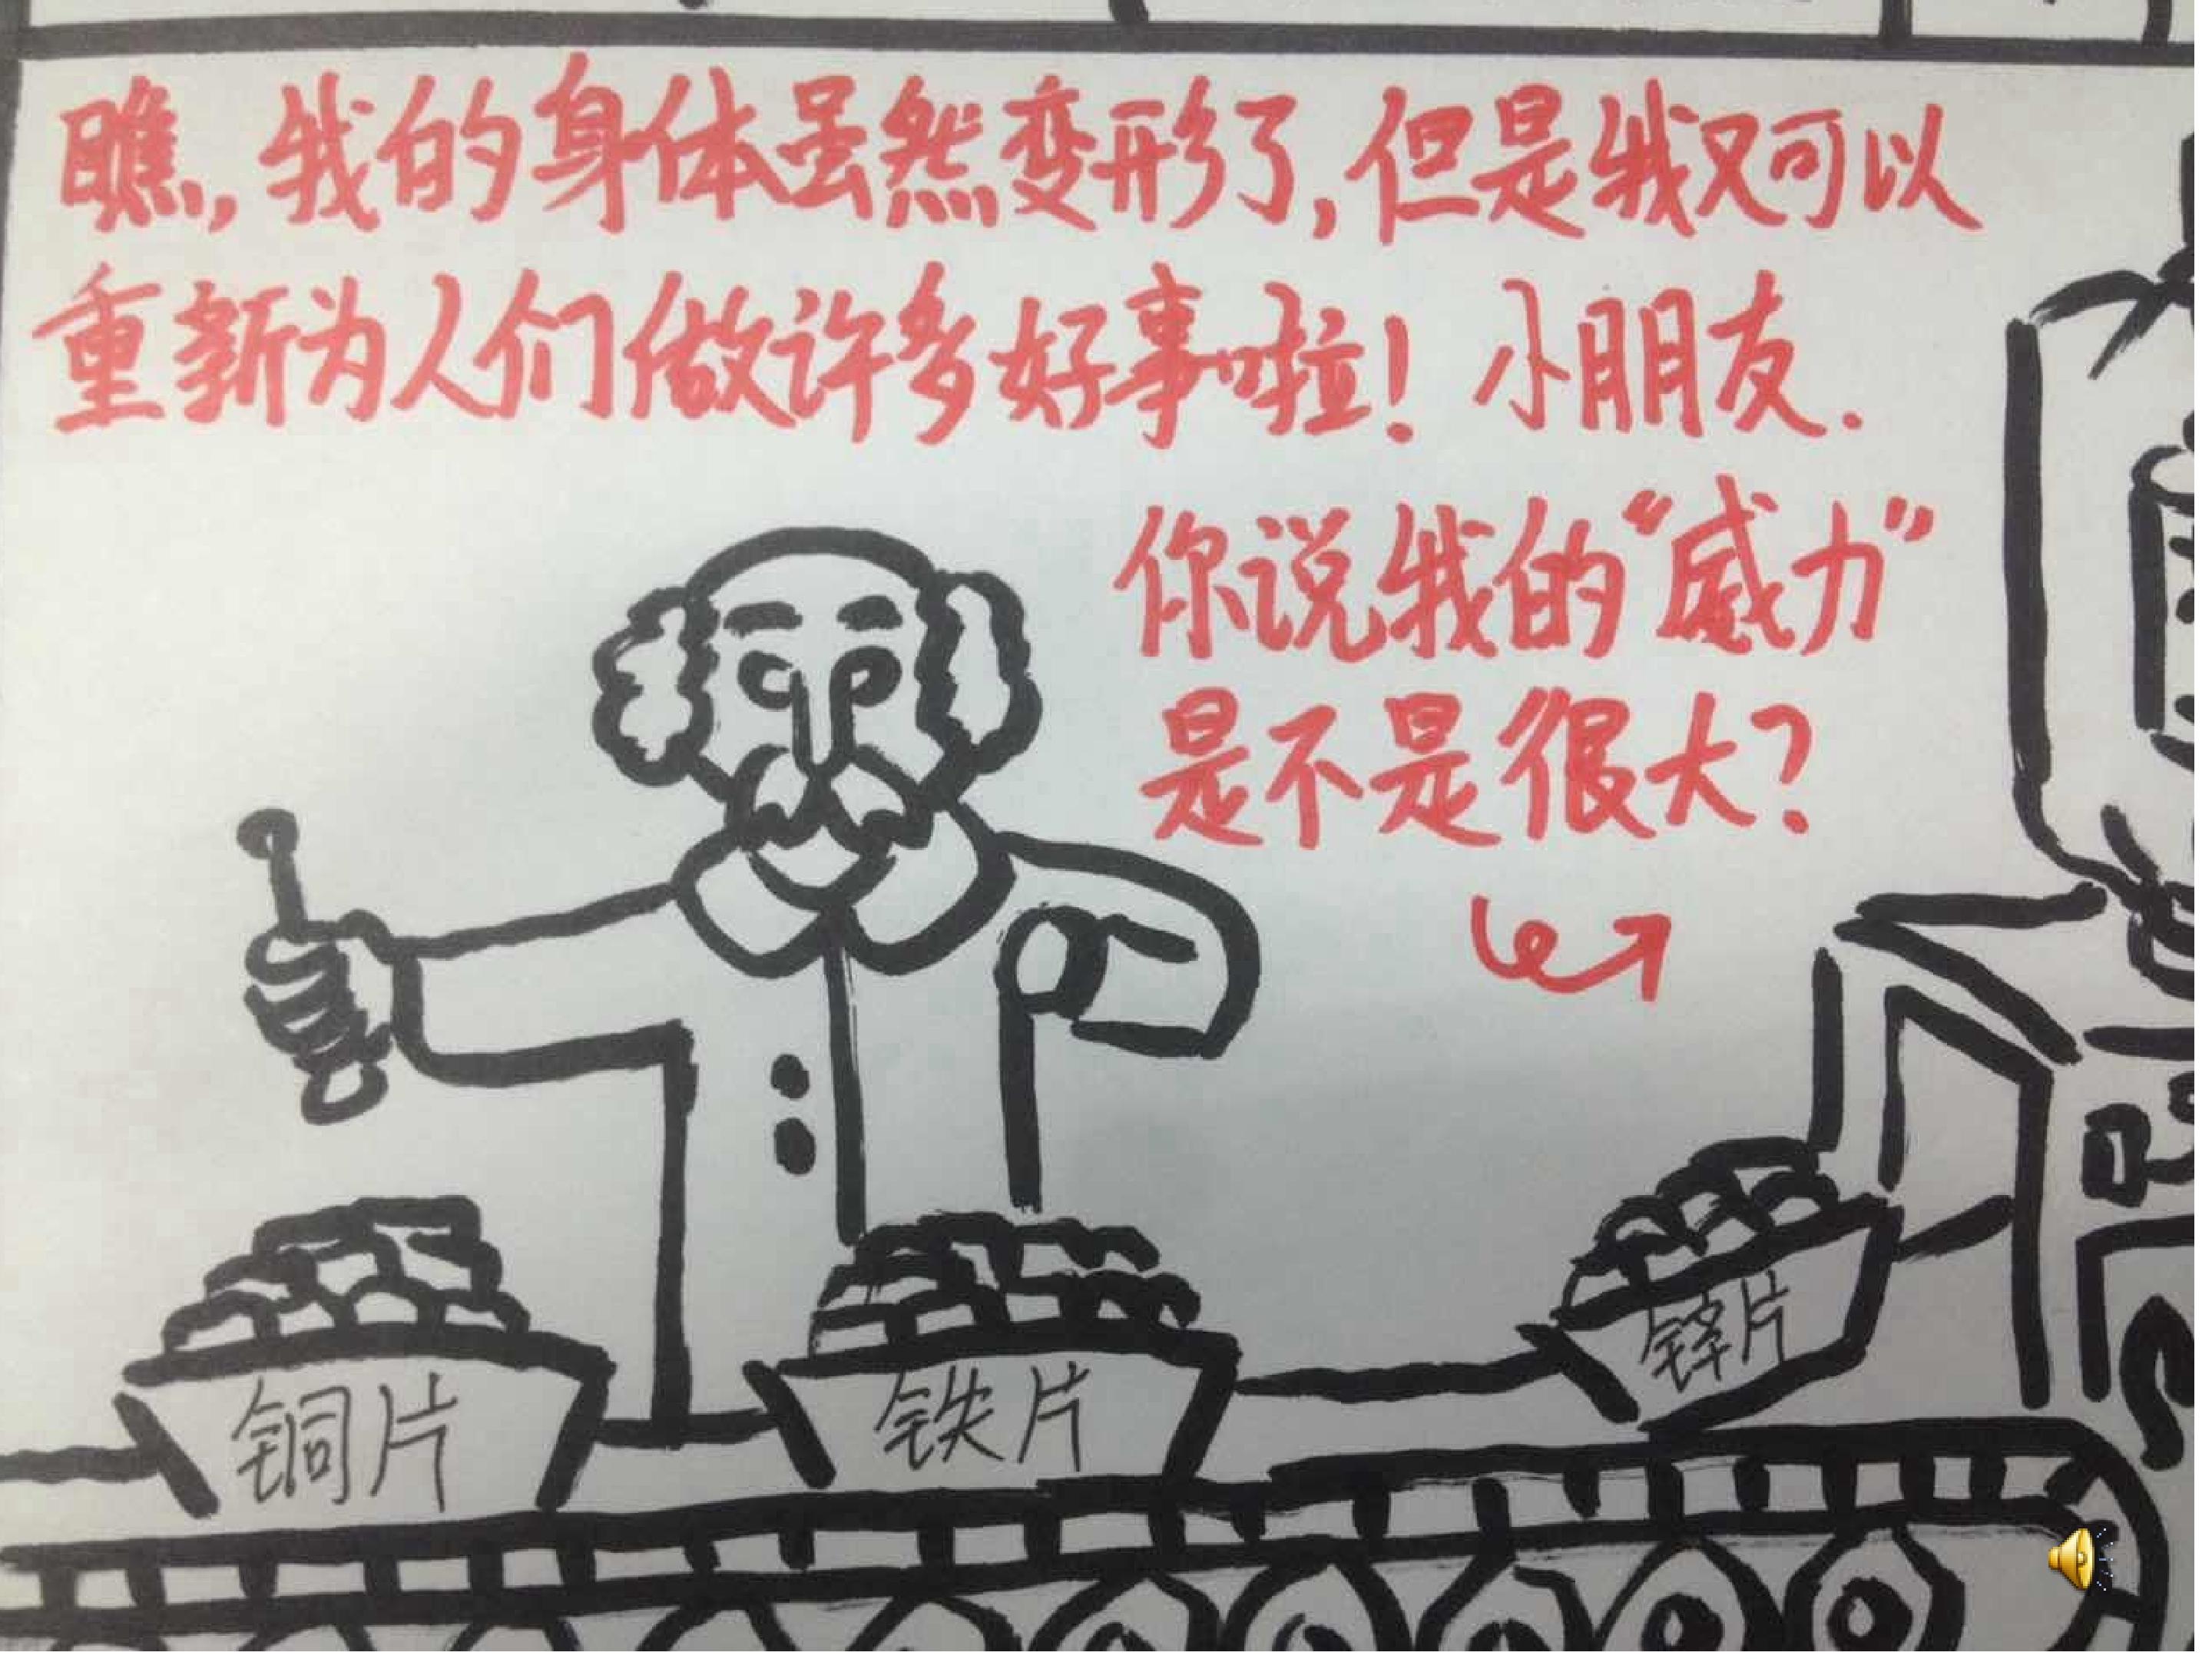 瞧,我的身体虽然变形了,但是我又可以
重新为人们做许多好事啦!小朋友.
你说我的“威力”
是不是很大?
铜片
铁片
锌片